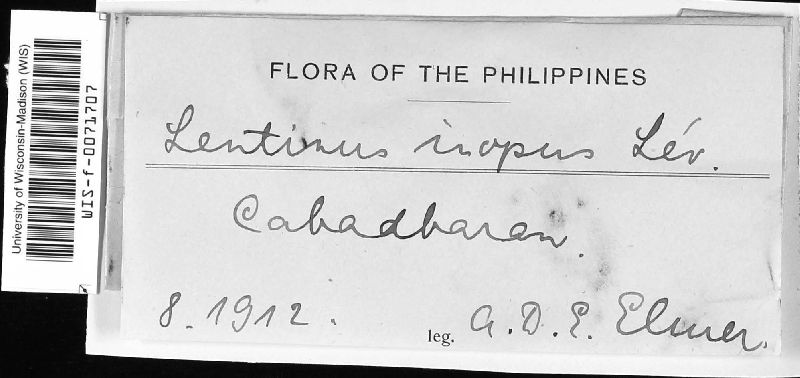 University of Wisconsin-Madison (WIS)
WIS-f-0071707
FLORA OF THE PHILIPPINES
Lentinus inopus Lév.
Cabadbaran.
8. 1912.
leg. A. D. E. Elmer.